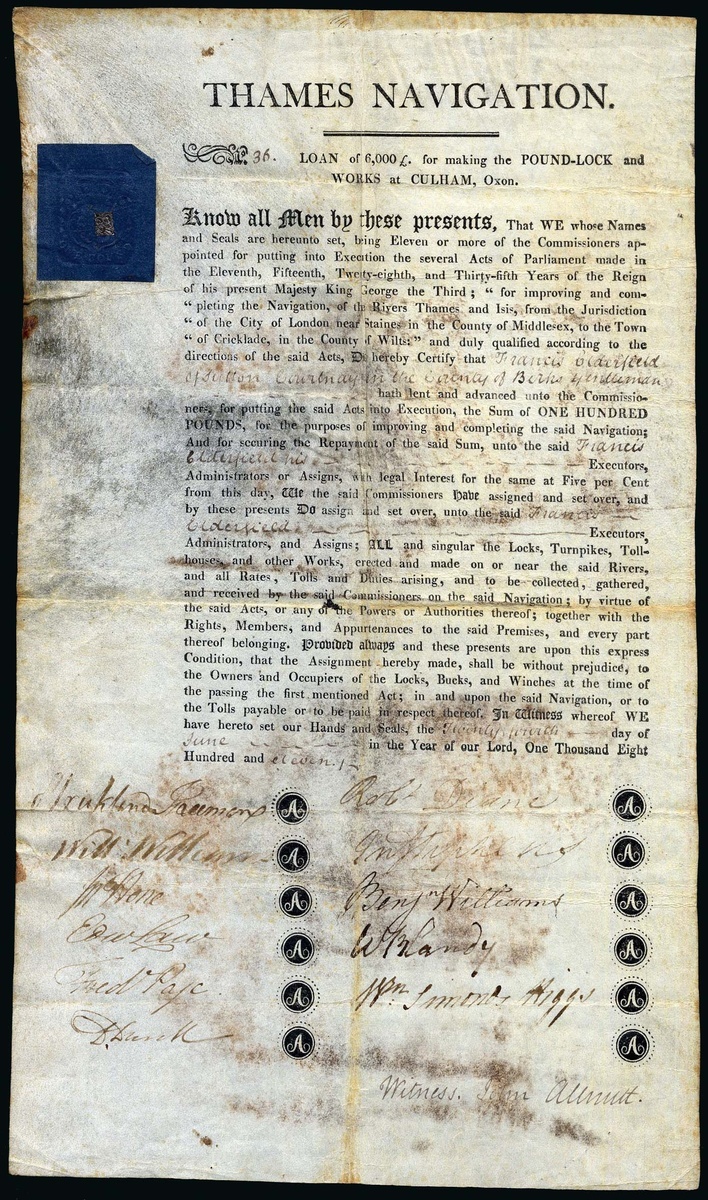 THAMES NAVIGATION.
No. 36. LOAN of 6,000 £. for making the POUND-LOCK and
WORKS at CULHAM, Oxon.
Know all Men by these presents, That WE whose Names
and Seals are hereunto set, being Eleven or more of the Commissioners ap-
pointed for putting into Execution the several Acts of Parliament made in
the Eleventh, Fifteenth, Twenty-eighth, and Thirty-fifth Years of the Reign
of his present Majesty King George the Third; “ for improving and com-
“ pleting the Navigation, of the Rivers Thames and Isis, from the Jurisdiction
“ of the City of London near Staines in the County of Middlesex, to the Town
“ of Cricklade, in the County of Wilts:” and duly qualified according to the
directions of the said Acts, Do hereby Certify that Francis Elderfield
of Sutton Courtnay in the County of Berks Gentleman
hath lent and advanced unto the Commissio-
ners, for putting the said Acts into Execution, the Sum of ONE HUNDRED
POUNDS, for the purposes of improving and completing the said Navigation;
And for securing the Repayment of the said Sum, unto the said Francis
Elderfield his Executors,
Administrators or Assigns, with legal Interest for the same at Five per Cent
from this day, We the said Commissioners Have assigned and set over, and
by these presents Do assign and set over, unto the said Francis
Elderfield Executors,
Administrators, and Assigns; ALL and singular the Locks, Turnpikes, Toll-
houses, and other Works, erected and made on or near the said Rivers,
and all Rates, Tolls and Duties arising, and to be collected, gathered,
and received by the said Commissioners on the said Navigation; by virtue of
the said Acts, or any of the Powers or Authorities thereof; together with the
Rights, Members, and Appurtenances to the said Premises, and every part
thereof belonging. Provided always and these presents are upon this express
Condition, that the Assignment hereby made, shall be without prejudice, to
the Owners and Occupiers of the Locks, Bucks, and Winches at the time of
the passing the first mentioned Act; in and upon the said Navigation, or to
the Tolls payable or to be paid in respect thereof. In Witness whereof WE
have hereto set our Hands and Seals, the Twenty fourth day of
June in the Year of our Lord, One Thousand Eight
Hundred and eleven.
Strickland Freeman A Robt Deane A
Will: Williams A A
A Benjn Williams A
Edw Law A W Blandy A
Fredk Page A Wm Simonds Higgs A
A A
Witness. John Allnutt.